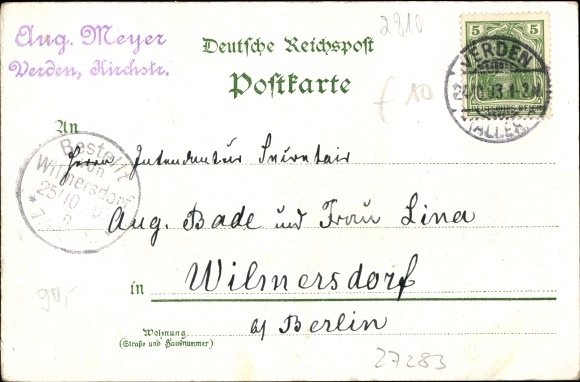 Aug. Meyer
Verden, Kirchstr.
Deutsche Reichspost
Postkarte
2810
5 5
VERDEN
24/10 03 1-2N
(ALLER)
f 10
An
Bestellt
von
Wilmersdorf
25/10
Herrn Intendantur Secretair
Aug. Bade und Frau Lina
in Wilmersdorf
b/ Berlin
90,-
Wohnung
(Straße und Hausnummer)
27283